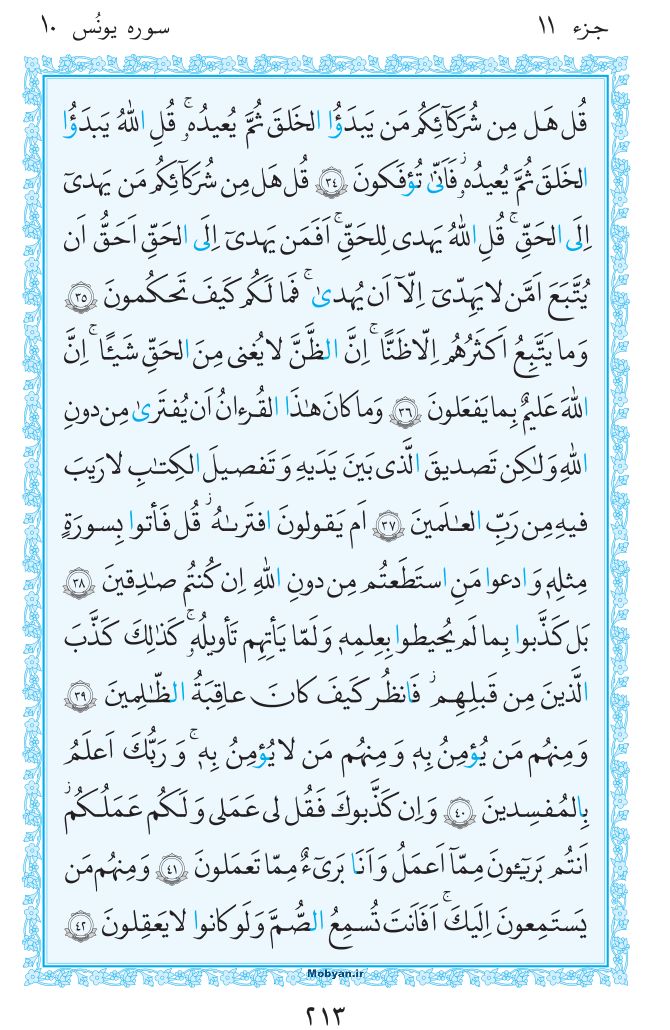 جزء ۱۱
سوره یونُس ۱۰
قُل هَل مِن شُرَكَآئِكُم مَن يَبدَؤُا الخَلقَ ثُمَّ يُعيدُهۥ ۚ قُلِ اللهُ يَبدَؤُا
الخَلقَ ثُمَّ يُعيدُهۥ ۖ فَاَنّىٰ تُؤفَكونَ ﴿۳۴﴾ قُل هَل مِن شُرَكَآئِكُم مَن يَهدىٓ
اِلَى الحَقِّ ۚ قُلِ اللهُ يَهدى لِلحَقِّ ۗ اَفَمَن يَهدىٓ اِلَى الحَقِّ اَحَقُّ اَن
يُتَّبَعَ اَمَّن لا يَهِدّىٓ اِلّآ اَن يُهدىٰ ۖ فَما لَكُم كَيفَ تَحكُمونَ ﴿۳۵﴾
وَما يَتَّبِعُ اَكثَرُهُم اِلّا ظَنًّا ۚ اِنَّ الظَّنَّ لا يُغنى مِنَ الحَقِّ شَيئًا ۚ اِنَّ
اللهَ عَليمٌ بِما يَفعَلونَ ﴿۳۶﴾ وَما كانَ هٰذَا القُرءانُ اَن يُفتَرىٰ مِن دونِ
اللهِ وَلٰكِن تَصديقَ الَّذى بَينَ يَدَيهِ وَ تَفصيلَ الكِتٰبِ لا رَيبَ
فيهِ مِن رَبِّ العٰلَمينَ ﴿۳۷﴾ اَم يَقولونَ افتَرىٰهُ ۖ قُل فَأتوا بِسورَةٍ
مِثلِهٖ وَ ادعوا مَنِ استَطَعتُم مِن دونِ اللهِ اِن كُنتُم صٰدِقينَ ﴿۳۸﴾
بَل كَذَّبوا بِما لَم يُحيطوا بِعِلمِهٖ وَ لَمّا يَأتِهِم تَأويلُهۥ ۚ كَذٰلِكَ كَذَّبَ
الَّذينَ مِن قَبلِهِم ۖ فَانظُر كَيفَ كانَ عاقِبَةُ الظّٰلِمينَ ﴿۳۹﴾
وَ مِنهُم مَن يُؤمِنُ بِهٖ وَ مِنهُم مَن لا يُؤمِنُ بِهٖ ۚ وَ رَبُّكَ اَعلَمُ
بِالمُفسِدينَ ﴿۴۰﴾ وَ اِن كَذَّبوكَ فَقُل لى عَمَلى وَ لَكُم عَمَلُكُم ۖ
اَنتُم بَريٓـٔونَ مِمّآ اَعمَلُ وَ اَنَا بَرىٓءٌ مِمّا تَعمَلونَ ﴿۴۱﴾ وَ مِنهُم مَن
يَستَمِعونَ اِلَيكَ ۚ اَفَاَنتَ تُسمِعُ الصُّمَّ وَ لَو كانوا لا يَعقِلونَ ﴿۴۲﴾
Mobyan.ir
۲۱۳